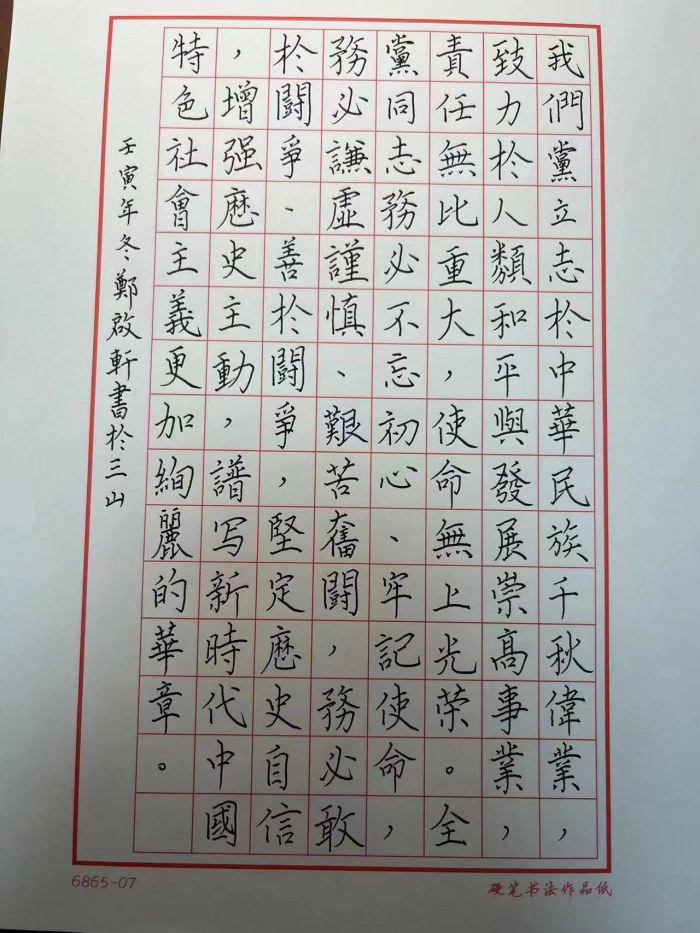 我們黨立志於中華民族千秋偉業，
致力於人類和平與發展崇高事業，
責任無比重大，使命無上光荣。全
黨同志務必不忘初心、牢記使命，
務必謙虛謹慎、艱苦奮鬪，務必敢
於鬪爭、善於鬪爭，堅定歷史自信
，增强歷史主動，譜写新時代中國
特色社會主義更加絢麗的華章。
壬寅年冬鄭啟軒書於三山
6865-07
硬笔书法作品纸